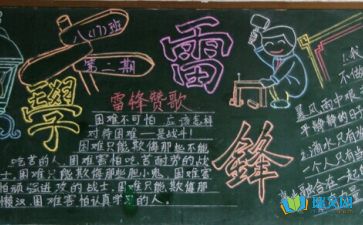 八(17)班
第二期
學
雷
鋒
雷锋赞歌
困难不可怕 应该怎样
对待困难—是战斗!
困难只能欺侮那些不能
吃苦的人,困难害怕吃苦耐劳的战
士,困难只能欺侮那些胆小鬼,困难害
怕顽强进攻的战士,困难只能欺侮那
懒汉,困难害怕认真学习的人.
1.
暴风雨中
平静静的日子
2.滴水只有
一个人只有
融合在一起
瑞文网